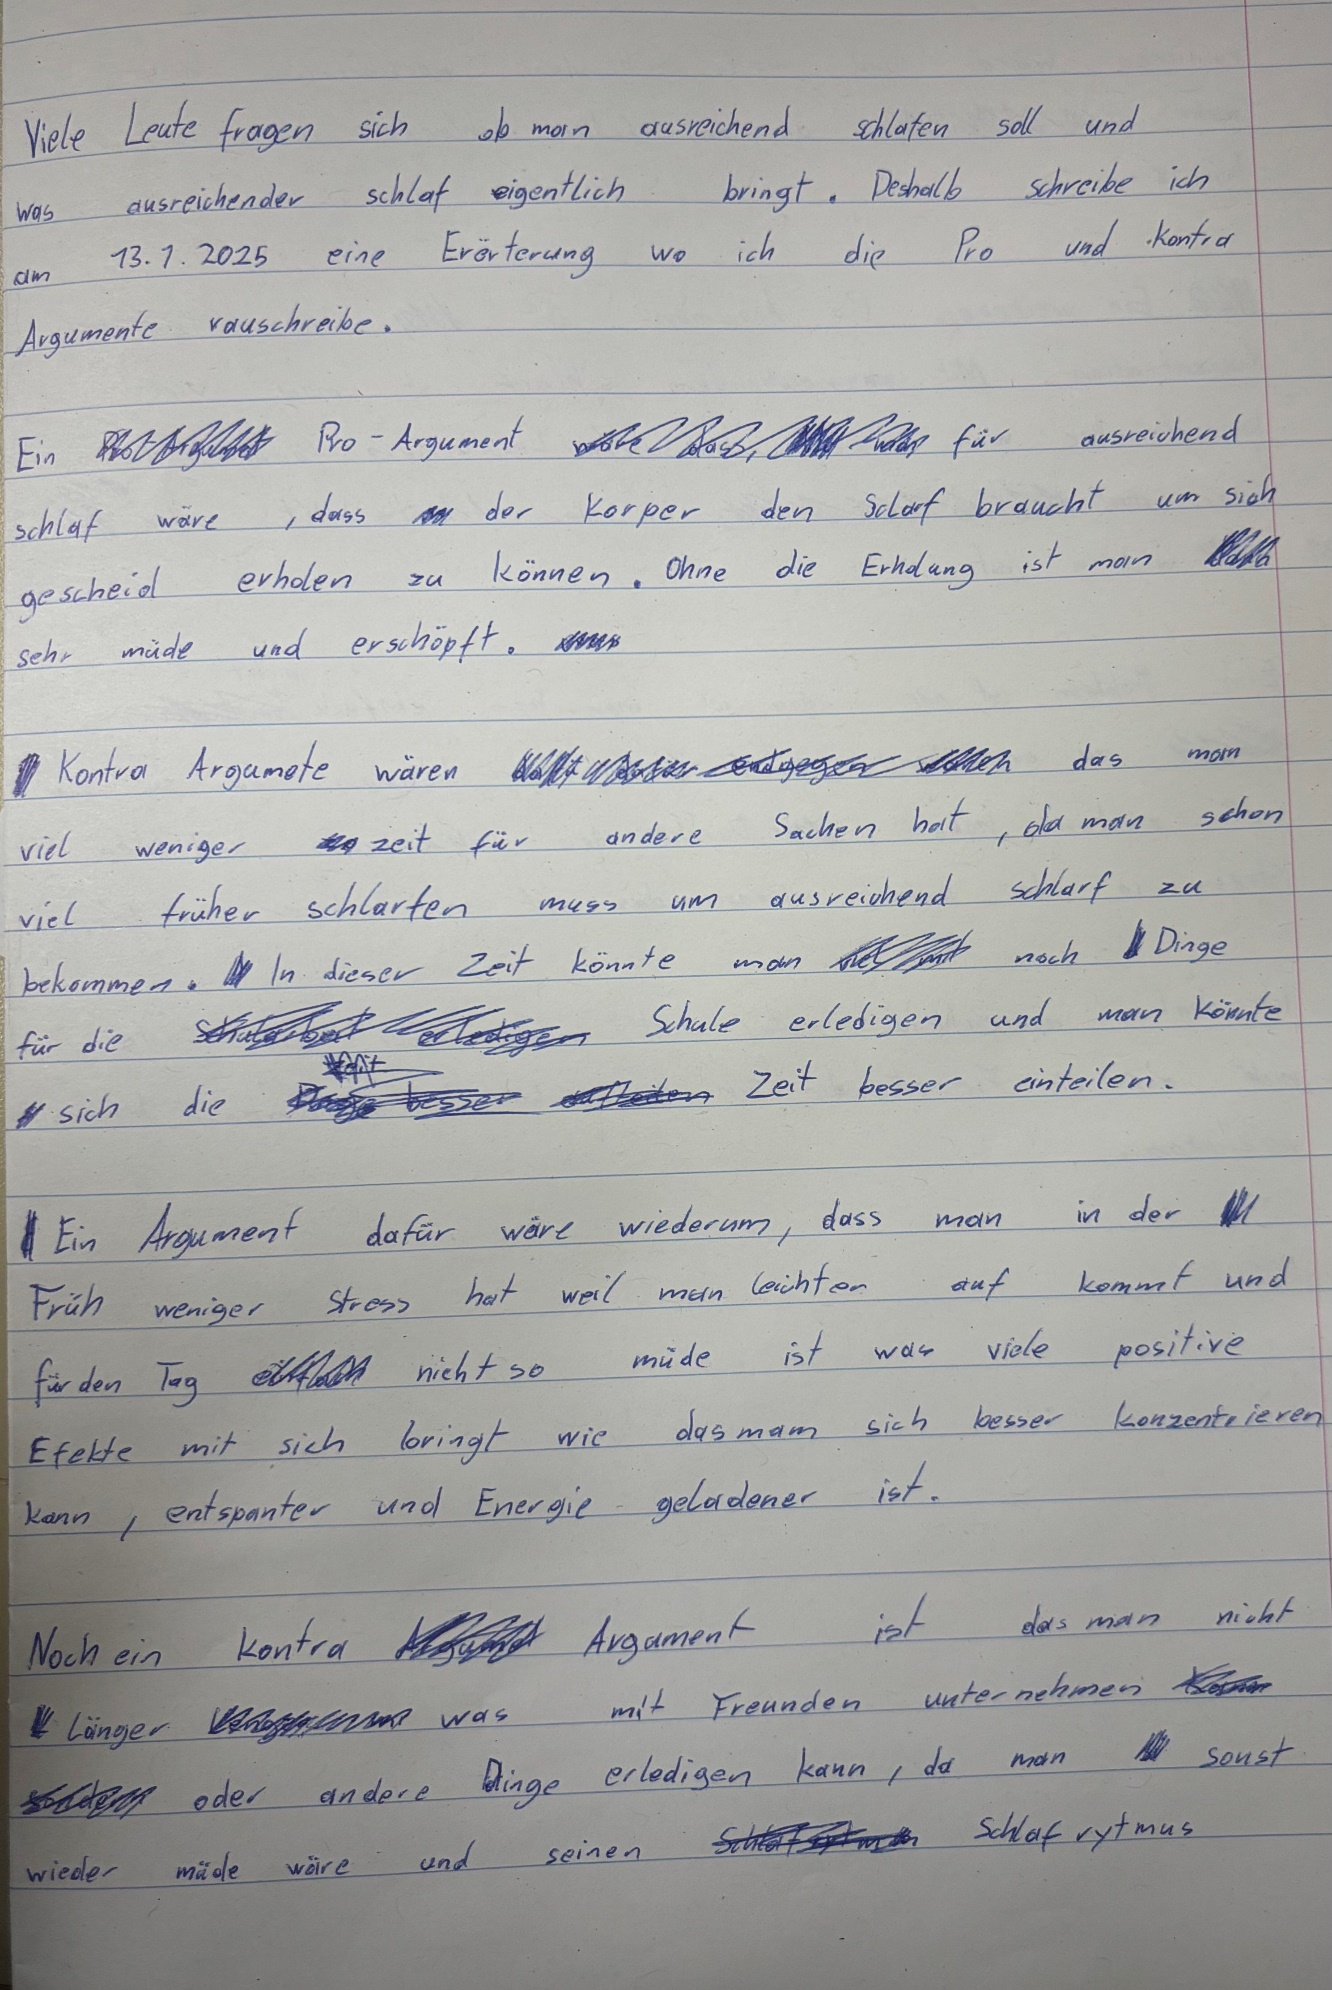 Viele Leute fragen sich ob man ausreichend schlafen soll und
was ausreichender schlaf eigentlich bringt. Deshalb schreibe ich
am 13.1.2025 eine Erörterung wo ich die Pro und Kontra
Argumente rauschreibe.
Ein Pro-Argument für ausreichend
schlaf wäre, dass der Korper den Sclarf braucht um sich
gescheid erholen zu können. Ohne die Erholung ist man
sehr müde und erschöpft.
Kontra Argumete wären das man
viel weniger zeit für andere Sachen hat, da man schon
viel früher schlarfen muss um ausreichend schlarf zu
bekommen. In dieser Zeit könnte man noch Dinge
für die Schule erledigen und man könnte
sich die Zeit besser einteilen.
Ein Argument dafür wäre wiederum, dass man in der
Früh weniger stress hat weil man leichter auf kommt und
für den Tag nicht so müde ist was viele positive
Efekte mit sich bringt wie das mam sich besser konzentrieren
kann, entspanter und Energie geladener ist.
Noch ein kontra Argument ist das man nicht
Länger was mit Freunden unternehmen
oder andere Dinge erledigen kann, da man sonst
wieder müde wäre und seinen Schlaf rytmus